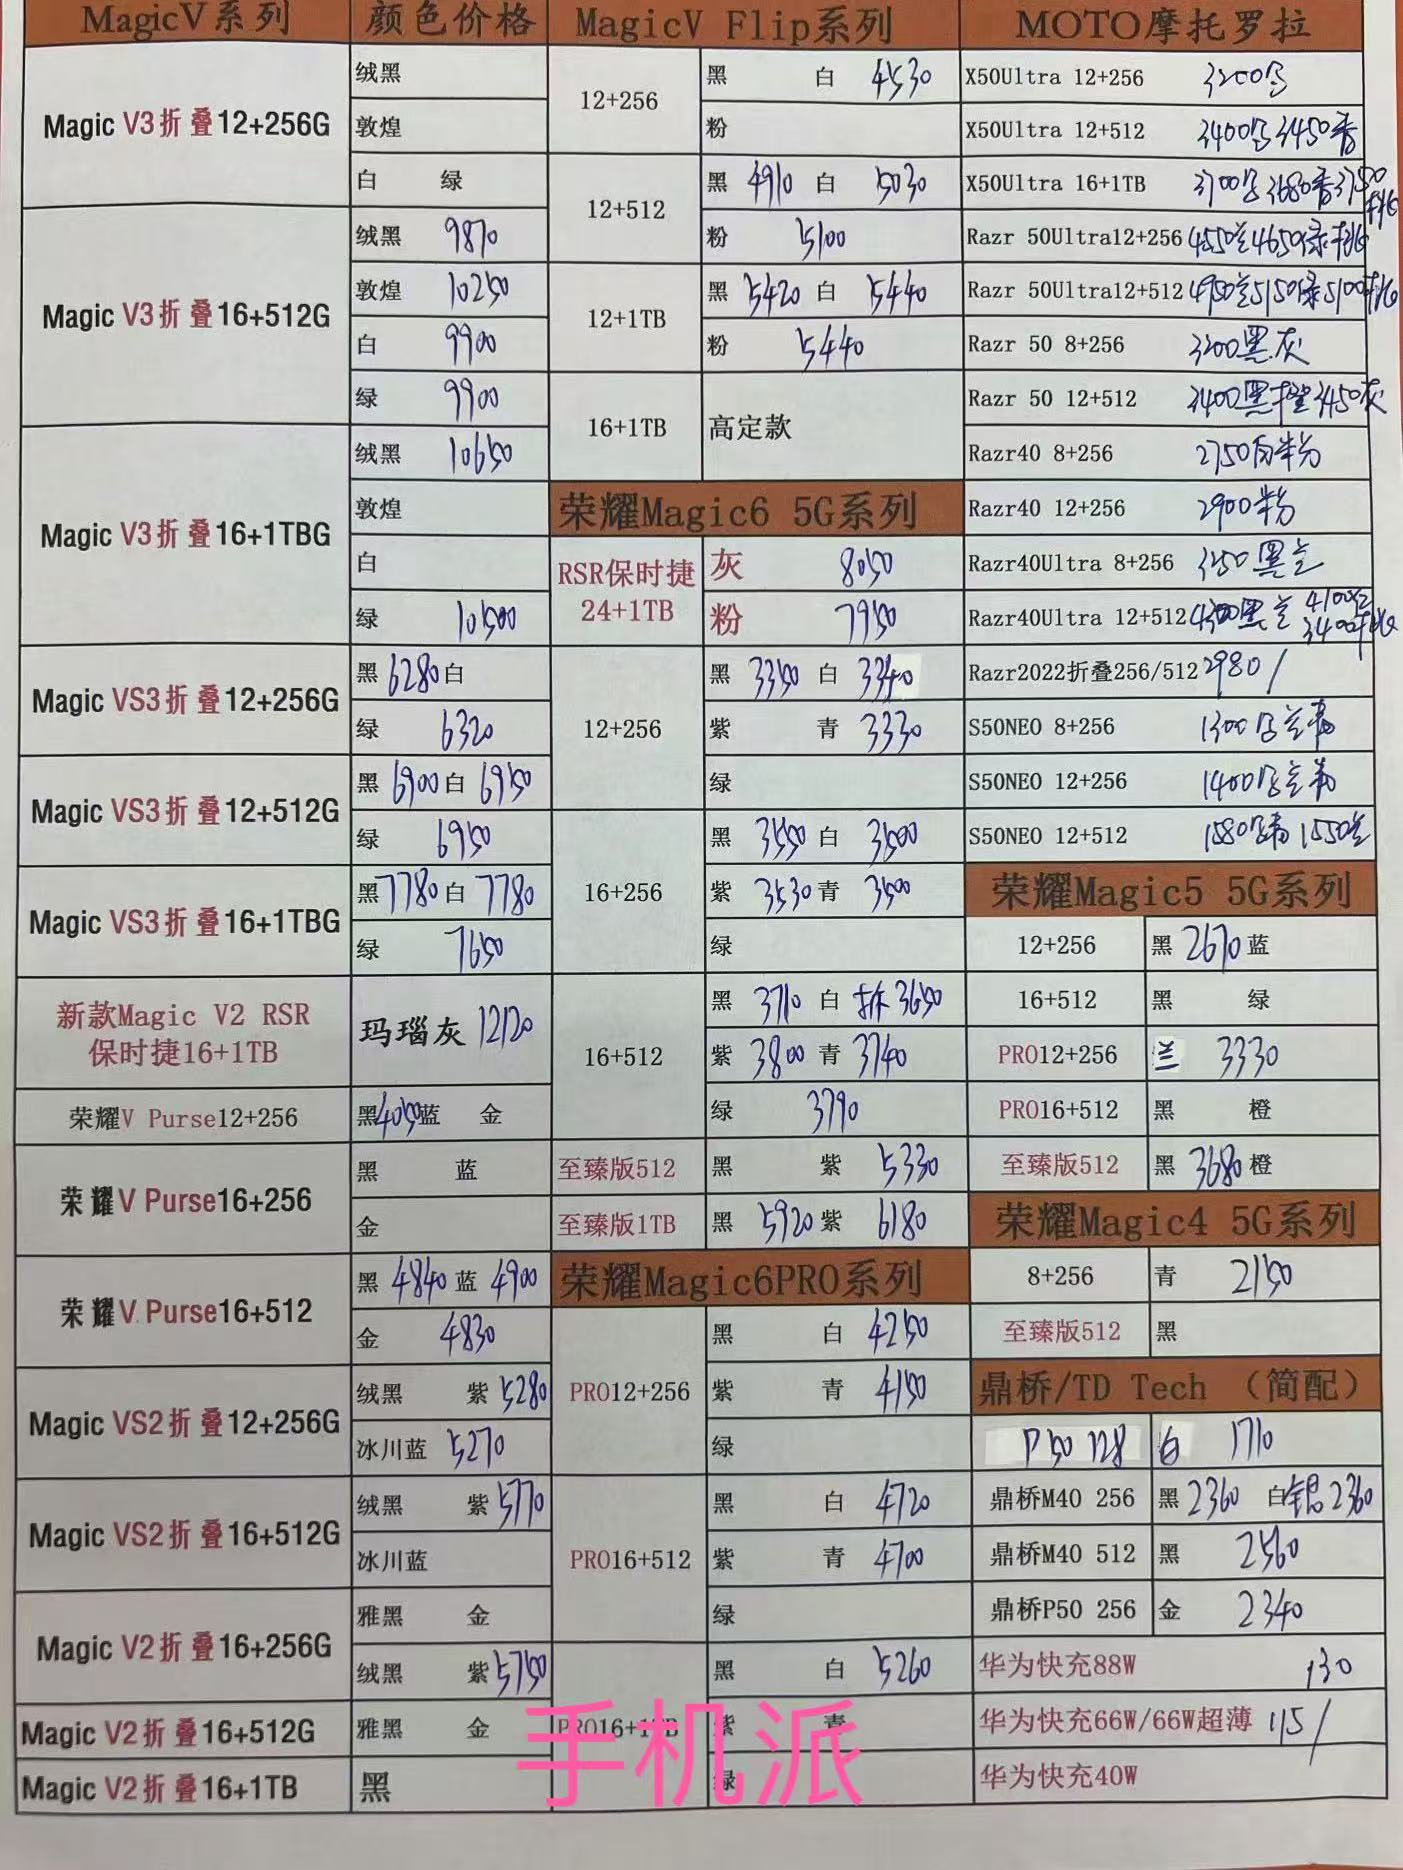 MagicV系列 颜色价格
Magic V3折叠12+256G
绒黑
敦煌
白 绿
Magic V3折叠16+512G
绒黑 9870
敦煌 10250
白 9900
绿 9900
Magic V3折叠16+1TBG
绒黑 10650
敦煌
白
绿 10500
Magic VS3折叠12+256G
黑 6280 白
绿 6320
Magic VS3折叠12+512G
黑 6900 白 6950
绿 6950
Magic VS3折叠16+1TBG
黑 7780 白 7780
绿 7650
新款Magic V2 RSR
保时捷16+1TB
玛瑙灰 12120
荣耀V Purse12+256
黑 4050 蓝 金
荣耀V Purse16+256
黑 蓝
金
荣耀V Purse16+512
黑 4840 蓝 4900
金 4830
Magic VS2折叠12+256G
绒黑 紫 5280
冰川蓝 5270
Magic VS2折叠16+512G
绒黑 紫 5770
冰川蓝
Magic V2折叠16+256G
雅黑 金
绒黑 紫 5750
Magic V2折叠16+512G
雅黑 金
Magic V2折叠16+1TB
黑
MagicV Flip系列
12+256
黑 白 4530
粉
12+512
黑 4910 白 5030
粉 5100
12+1TB
黑 5420 白 5440
粉 5440
16+1TB
高定款
荣耀Magic6 5G系列
RSR保时捷
24+1TB
灰 8050
粉 7950
12+256
黑 3350 白 3340
紫 青 3330
绿
16+256
黑 3550 白 3500
紫 3530 青 3500
绿
16+512
黑 3710 白 拆 3650
紫 3800 青 3740
绿 3790
至臻版512 黑 紫 5330
至臻版1TB 黑 5920 紫 6180
荣耀Magic6PRO系列
PRO12+256
黑 白 4250
紫 青 4150
绿
PRO16+512
黑 白 4720
紫 青 4700
绿
PRO16+1TB
黑 白 5260
紫 青
绿
MOTO摩托罗拉
X50Ultra 12+256 3200
X50Ultra 12+512 3400 3450
X50Ultra 16+1TB 3700 3680 3750
Razr 50Ultra12+256 4550兰4650绿
Razr 50Ultra12+512 4950兰5150绿5100
Razr 50 8+256 3200黑.灰
Razr 50 12+512 3400黑橙3450灰
Razr40 8+256 2750白粉
Razr40 12+256 2900粉
Razr40Ultra 8+256 黑兰
Razr40Ultra 12+512 4300黑兰 4100红
3400
Razr2022折叠256/512 2980/
S50NEO 8+256 1300
S50NEO 12+256 1400
S50NEO 12+512 1580 1550兰
荣耀Magic5 5G系列
12+256 黑 2670 蓝
16+512 黑 绿
PRO12+256 兰 3330
PRO16+512 黑 橙
至臻版512 黑 3680 橙
荣耀Magic4 5G系列
8+256 青 2150
至臻版512 黑
鼎桥/TD Tech （简配）
P50 128 白 1710
鼎桥M40 256 黑 2360 白银 2360
鼎桥M40 512 黑 2560
鼎桥P50 256 金 2340
华为快充88W 130
华为快充66W/66W超薄 115/
华为快充40W
手机派